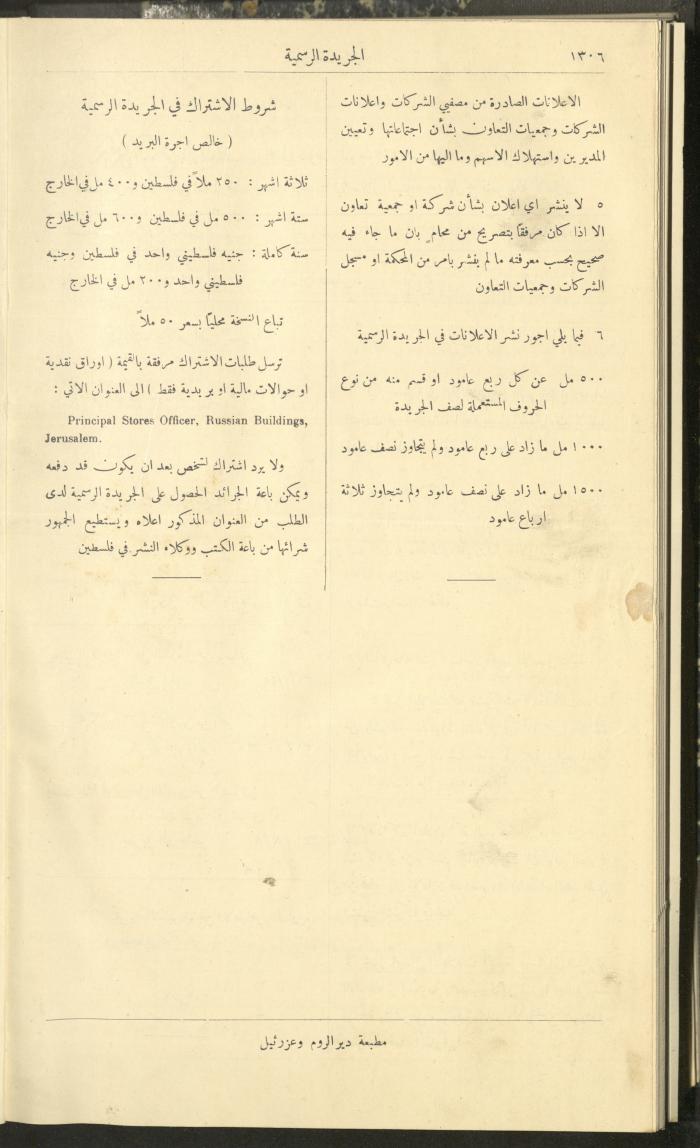 ١٣٠٦
الجريدة الرسمية
الاعلانات الصادرة من مصفيي الشركات واعلانات
الشركات وجمعيات التعاون بشأن اجتماعاتها وتعيين
المديرين واستهلاك الاسهم وما اليها من الامور
٥ لا ينشر اي اعلان بشأن شركة او جمعية تعاون
الا اذا كان مرفقاً بتصريح من محامٍ بان ما جاء فيه
صحيح بحسب معرفته ما لم ينشر بامر من المحكمة او مسجل
الشركات وجمعيات التعاون
٦ فيما يلي اجور نشر الاعلانات في الجريدة الرسمية
٥٠٠ مل عن كل ربع عامود او قسم منه من نوع
الحروف المستعملة لصف الجريدة
١٠٠٠ مل ما زاد على ربع عامود ولم يتجاوز نصف عامود
١٥٠٠ مل ما زاد على نصف عامود ولم يتجاوز ثلاثة
ارباع عامود
شروط الاشتراك في الجريدة الرسمية
( خالص اجرة البريد )
ثلاثة اشهر : ٢٥٠ ملاً في فلسطين و٤٠٠ مل في الخارج
ستة اشهر : ٥٠٠ مل في فلسطين و٦٠٠ مل في الخارج
سنة كاملة : جنيه فلسطيني واحد في فلسطين وجنيه
فلسطيني واحد و٢٠٠ مل في الخارج
تباع النسخة محلياً بسعر ٥٠ ملاً
ترسل طلبات الاشتراك مرفقة بالقيمة ( اوراق نقدية
او حوالات مالية او بريدية فقط ) الى العنوان الاتي :
Principal Stores Officer, Russian Buildings,
Jerusalem.
ولا يرد اشتراك لشخص بعد ان يكون قد دفعه
ويمكن باعة الجرائد الحصول على الجريدة الرسمية لدى
الطلب من العنوان المذكور اعلاه ويستطيع الجمهور
شرائها من باعة الكتب ووكلاء النشر في فلسطين
مطبعة دير الروم وعزرئيل